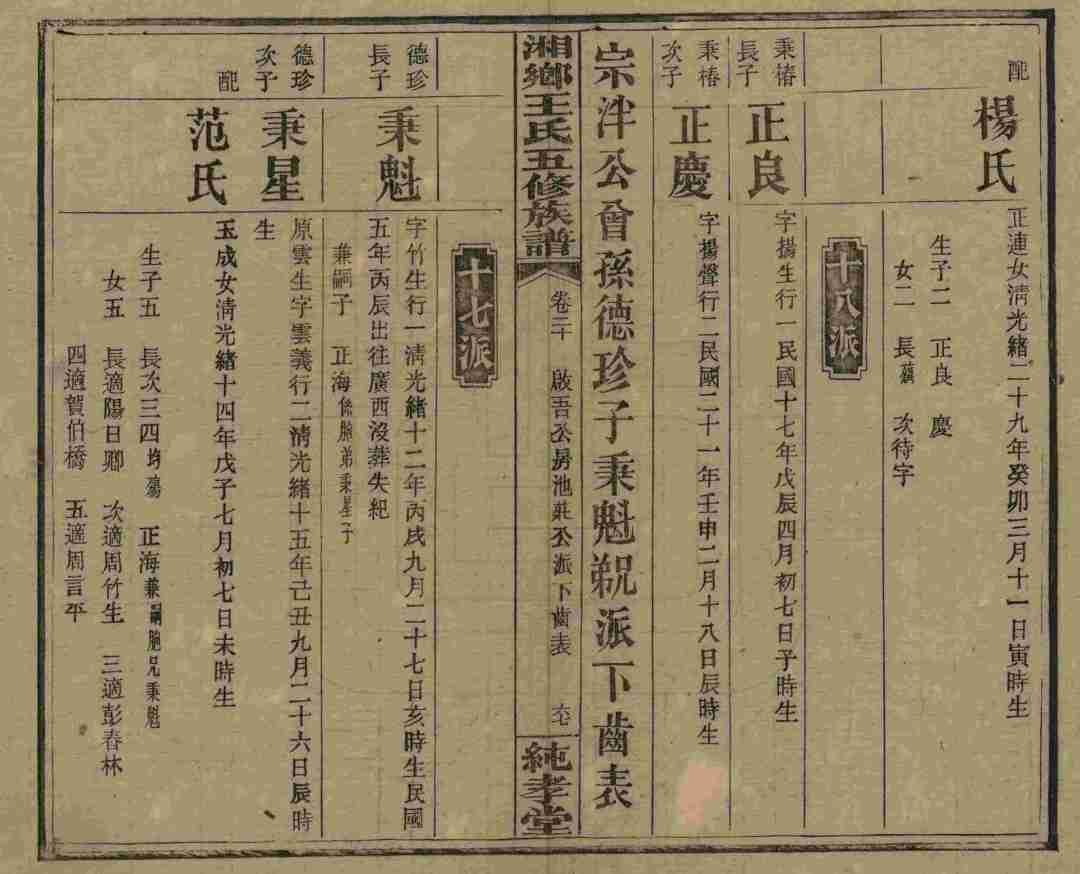 配
楊氏
正連女清光緒二十九年癸卯三月十一日寅時生
生子二　正良　慶
女二　長殤　次待字
十八派
秉椿長子
正良
字揚生行一民國十七年戊辰四月初七日子時生
秉椿次子
正慶
字揚聲行二民國二十一年壬申二月十八日辰時生
宗泮公曾孫德珍子秉魁祝派下齒表
湘鄉王氏五修族譜
卷二十　啟吾公房池莊公派下齒表
純孝堂
十七派
德珍長子
秉魁
字竹生行一清光緒十二年丙戌九月二十七日亥時生民國
五年丙辰出往廣西沒葬失紀
兼嗣子　正海係胞弟秉星子
德珍次子
秉星
原雲生字雲義行二清光緒十五年己丑九月二十六日辰時
生
配
范氏
玉成女清光緒十四年戊子七月初七日未時生
生子五　長次三四均殤　正海兼嗣胞兄秉魁
女五　長適陽日卿　次適周竹生　三適彭春林
四適賀伯橋　五適周言平